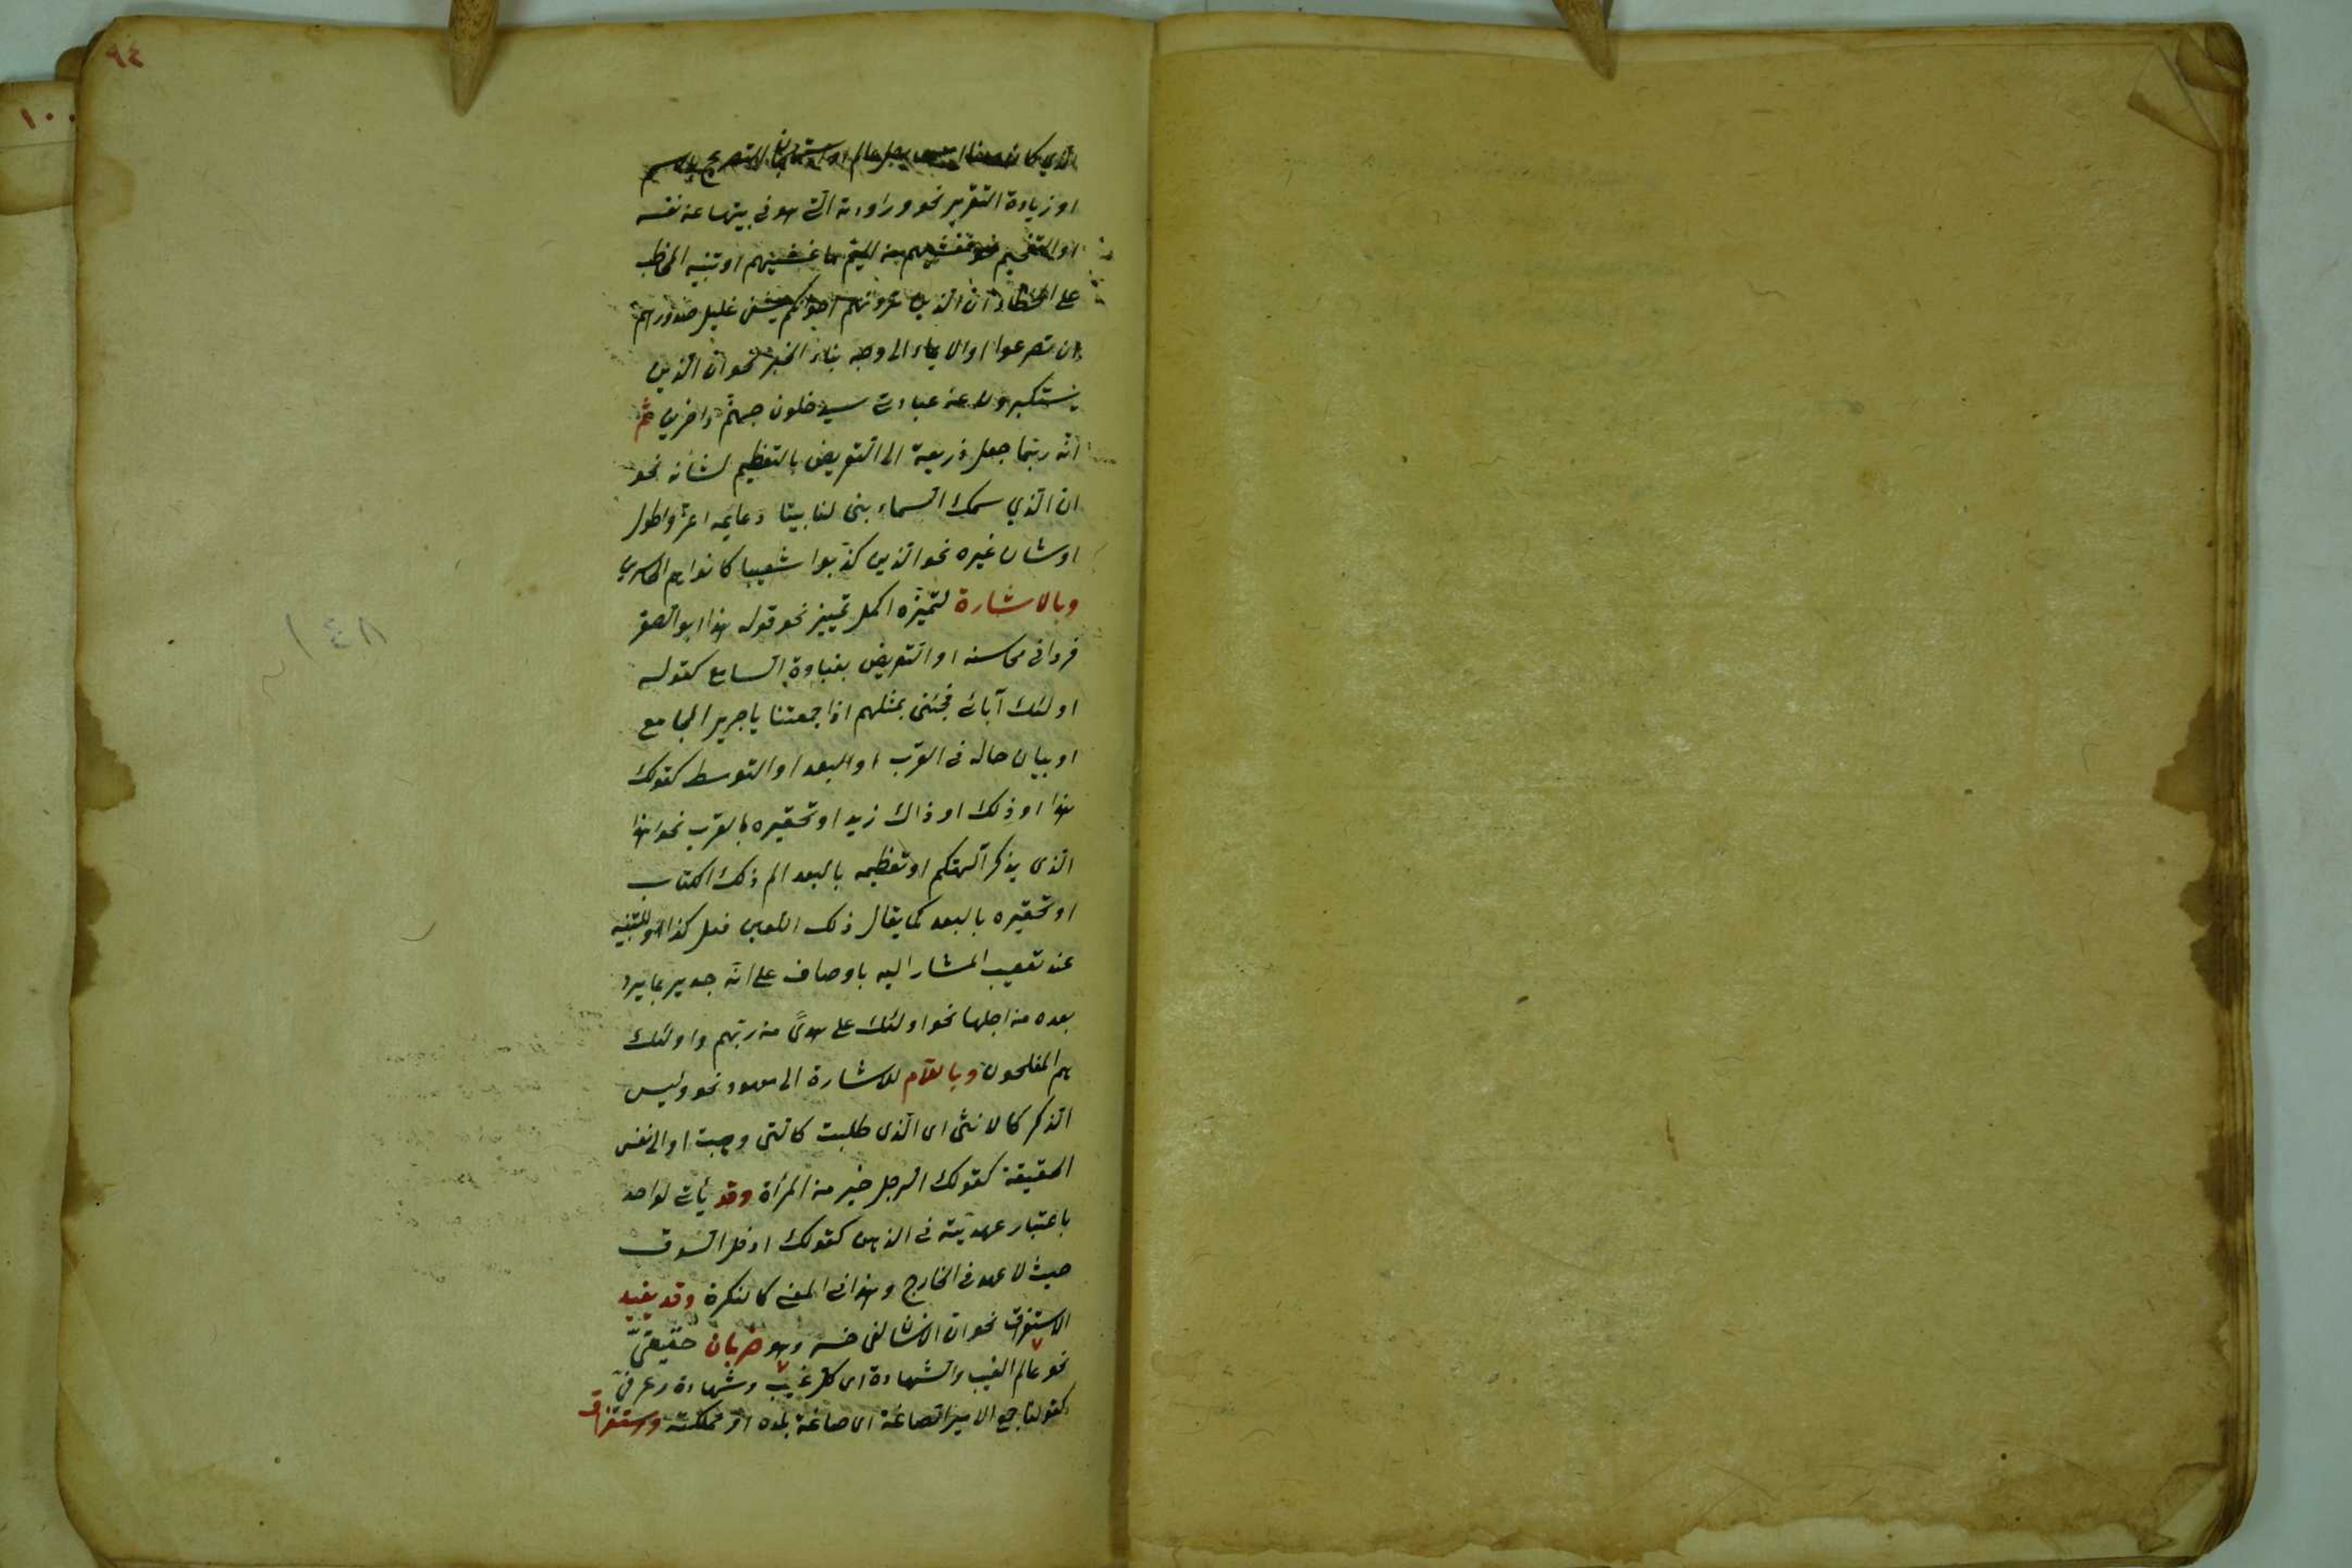 ٩٤
١٠٠
الذي كان معنا امس رجل عالم او استهجان التصريح بالاسم
او زيادة التقرير نحو وراودته التي هو في بيتها عن نفسه
او التفخيم نحو فغشيهم من اليم ما غشيهم او تنبيه المخاطب
على الخطاء ان الذين ترونهم اخوانكم يشفى غليل صدورهم
ان تصرعوا او الايماء الى وجه بناء الخبر نحو ان الذين
يستكبرون عن عبادتى سيدخلون جهنم داخرين ثم
انه ربما جعل ذريعة الى التعريض بالتعظيم لشأنه نحو
ان الذي سمك السماء بنى لنا بيتا دعايمه اعز واطول
او شان غيره نحو الذين كذبوا شعيبا كانوا هم الخاسرين
وبالاشارة لتميزه اكمل تمييز نحو قوله هذا ابو الصقر
فردا في محاسنه او التعريض بغباوة السامع كقوله
اولئك آبائى فجئنى بمثلهم اذا جمعتنا يا جرير المجامع
او بيان حاله في القرب او البعد او التوسط كقولك
هذا او ذلك او ذاك زيد او تحقيره بالقرب نحو اهذا
الذى يذكر آلهتكم او تعظيمه بالبعد الم ذلك الكتاب
او تحقيره بالبعد كما يقال ذلك اللعين فعل كذا او للتنبيه
عند تعقيب المشار اليه باوصاف على انه جدير بما يرد
بعده من اجلها نحو اولئك على هدىً من ربهم واولئك
هم المفلحون وباللام للاشارة الى معهود نحو وليس
الذكر كالانثى اى الذى طلبت كالتى وهبت او الى نفس
الحقيقة كقولك الرجل خير من المرأة وقد يأتى لواحد
باعتبار عهديته في الذهن كقولك ادخل السوق
حيث لا عهد في الخارج وهذا في المعنى كالنكرة وقد يفيد
الاستغراق نحو ان الانسان لفى خسر وهو ضربان حقيقىّ
نحو عالم الغيب والشهادة اى كل غيب وشهادة وعرفىّ
كقولنا جمع الامير الصاغة اى صاغة بلده او مملكته واستغراق
١٤٨